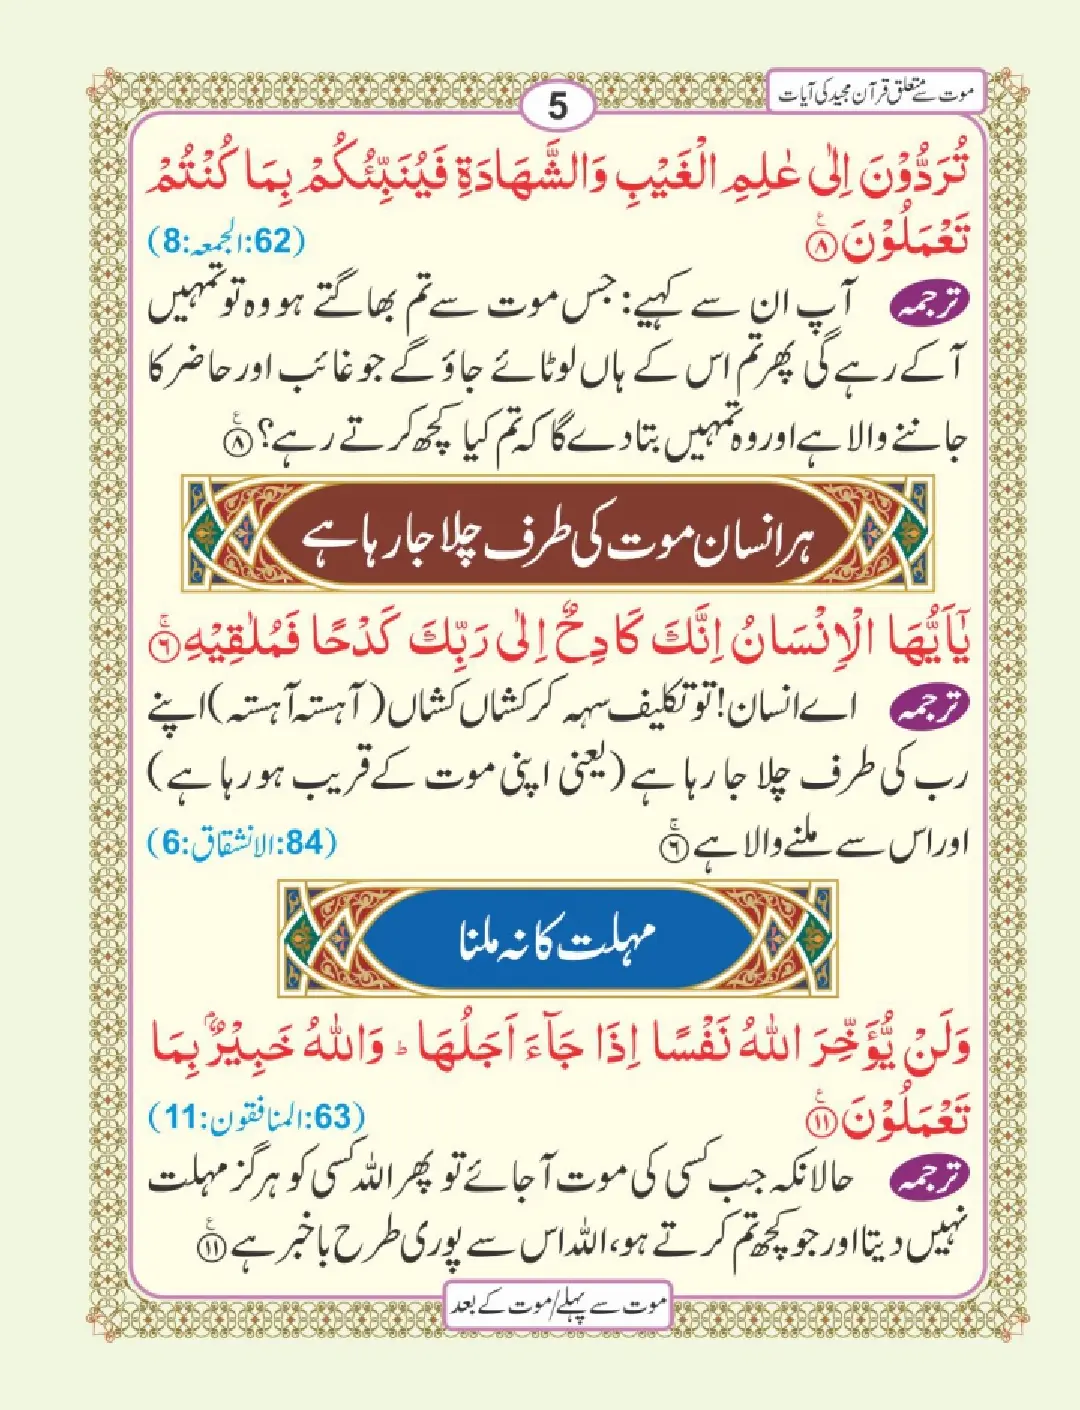 موت سے متعلق قرآن مجید کی آیات
5
تُرَدُّوْنَ اِلٰى عٰلِمِ الْغَيْبِ وَالشَّهَادَةِ فَيُنَبِّئُكُمْ بِمَا كُنْتُمْ
تَعْمَلُوْنَ ۝۸ (62:الجمعہ:8)
ترجمہ آپ ان سے کہیے: جس موت سے تم بھاگتے ہو وہ تو تمہیں
آ کے رہے گی پھر تم اس کے ہاں لوٹائے جاؤ گے جو غائب اور حاضر کا
جاننے والا ہے اور وہ تمہیں بتا دے گا کہ تم کیا کچھ کرتے رہے؟ ۝۸
ہر انسان موت کی طرف چلا جا رہا ہے
يٰٓاَيُّهَا الْاِنْسَانُ اِنَّكَ كَادِحٌ اِلٰى رَبِّكَ كَدْحًا فَمُلٰقِيْهِ ۝۶
ترجمہ اے انسان! تو تکلیف سہہ کر کشاں کشاں (آہستہ آہستہ) اپنے
رب کی طرف چلا جا رہا ہے (یعنی اپنی موت کے قریب ہو رہا ہے)
اور اس سے ملنے والا ہے ۝۶ (84:الانشقاق:6)
مہلت کا نہ ملنا
وَلَنْ يُّؤَخِّرَ اللّٰهُ نَفْسًا اِذَا جَآءَ اَجَلُهَا ؕ وَاللّٰهُ خَبِيْرٌۢ بِمَا
تَعْمَلُوْنَ ۝۱۱ (63:المنافقون:11)
ترجمہ حالانکہ جب کسی کی موت آ جائے تو پھر اللہ کسی کو ہرگز مہلت
نہیں دیتا اور جو کچھ تم کرتے ہو، اللہ اس سے پوری طرح باخبر ہے ۝۱۱
موت سے پہلے/موت کے بعد